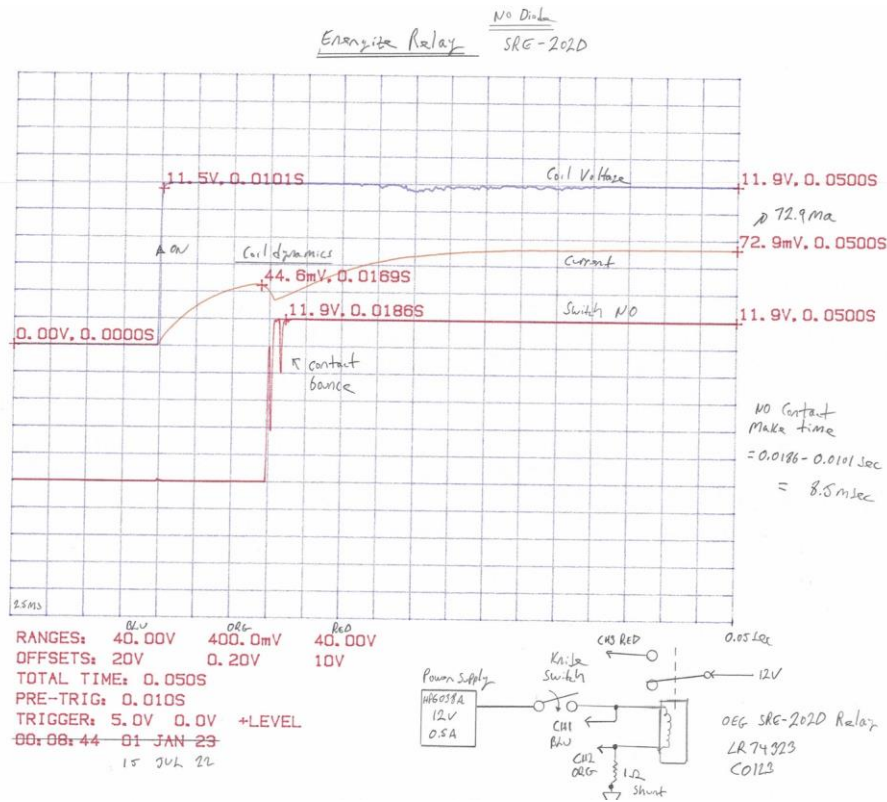 No Diode
Energize Relay
SRE-202D
11.5V, 0.0101S
Coil Voltage
11.9V, 0.0500S
72.9ma
ON
Coil dynamics
72.9mV, 0.0500S
44.6mV, 0.0169S
Current
11.9V, 0.0186S
Switch NO
11.9V, 0.0500S
0.00V, 0.0000S
contact
bounce
NO Contact
Make time
=0.0186-0.0101 sec
= 8.5msec
2.5MS
0.05 sec
BLU ORG RED
RANGES: 40.00V 400.0mV 40.00V
OFFSETS: 20V 0.20V 10V
TOTAL TIME: 0.050S
PRE-TRIG: 0.010S
TRIGGER: 5.0V 0.0V +LEVEL
00:08:44 01 JAN 23
15 JUL 22
Power Supply
HP6038A
12V
0.5A
Knife
Switch
CH3 RED
12V
CH1
BLU
CH2
ORG
1Ω
Shunt
OEG SRE-202D Relay
LR74323
C0123